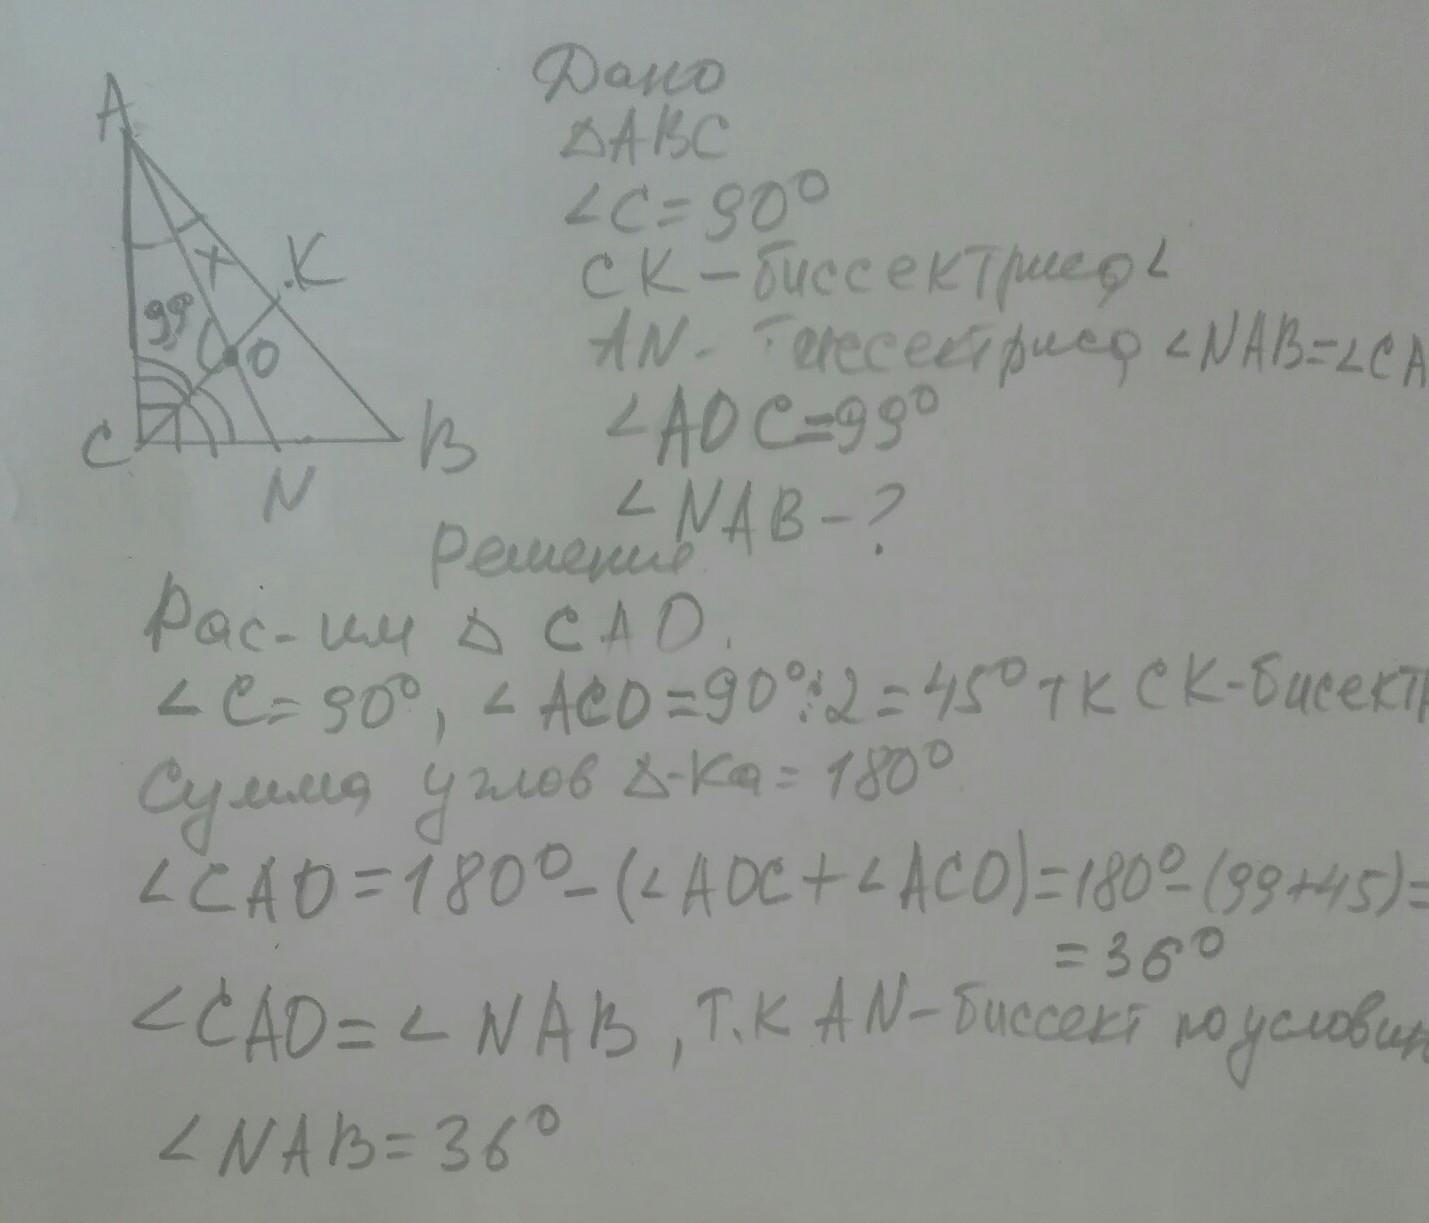 A
K
x
99°
O
C
B
N
Дано
△ABC
∠C=90°
CK-биссектриса∠
AN-биссектриса ∠NAB=∠CA
∠AOC=99°
∠NAB-?
Решение
Рас-им △ CAO.
∠C=90°, ∠ACO=90°:2=45° тк CK-бисект
Сумма углов △-ка=180°
∠CAO=180°-(∠AOC+∠ACO)=180°-(99+45)=
=36°
∠CAO=∠NAB, т.к AN-биссект по условию
∠NAB=36°